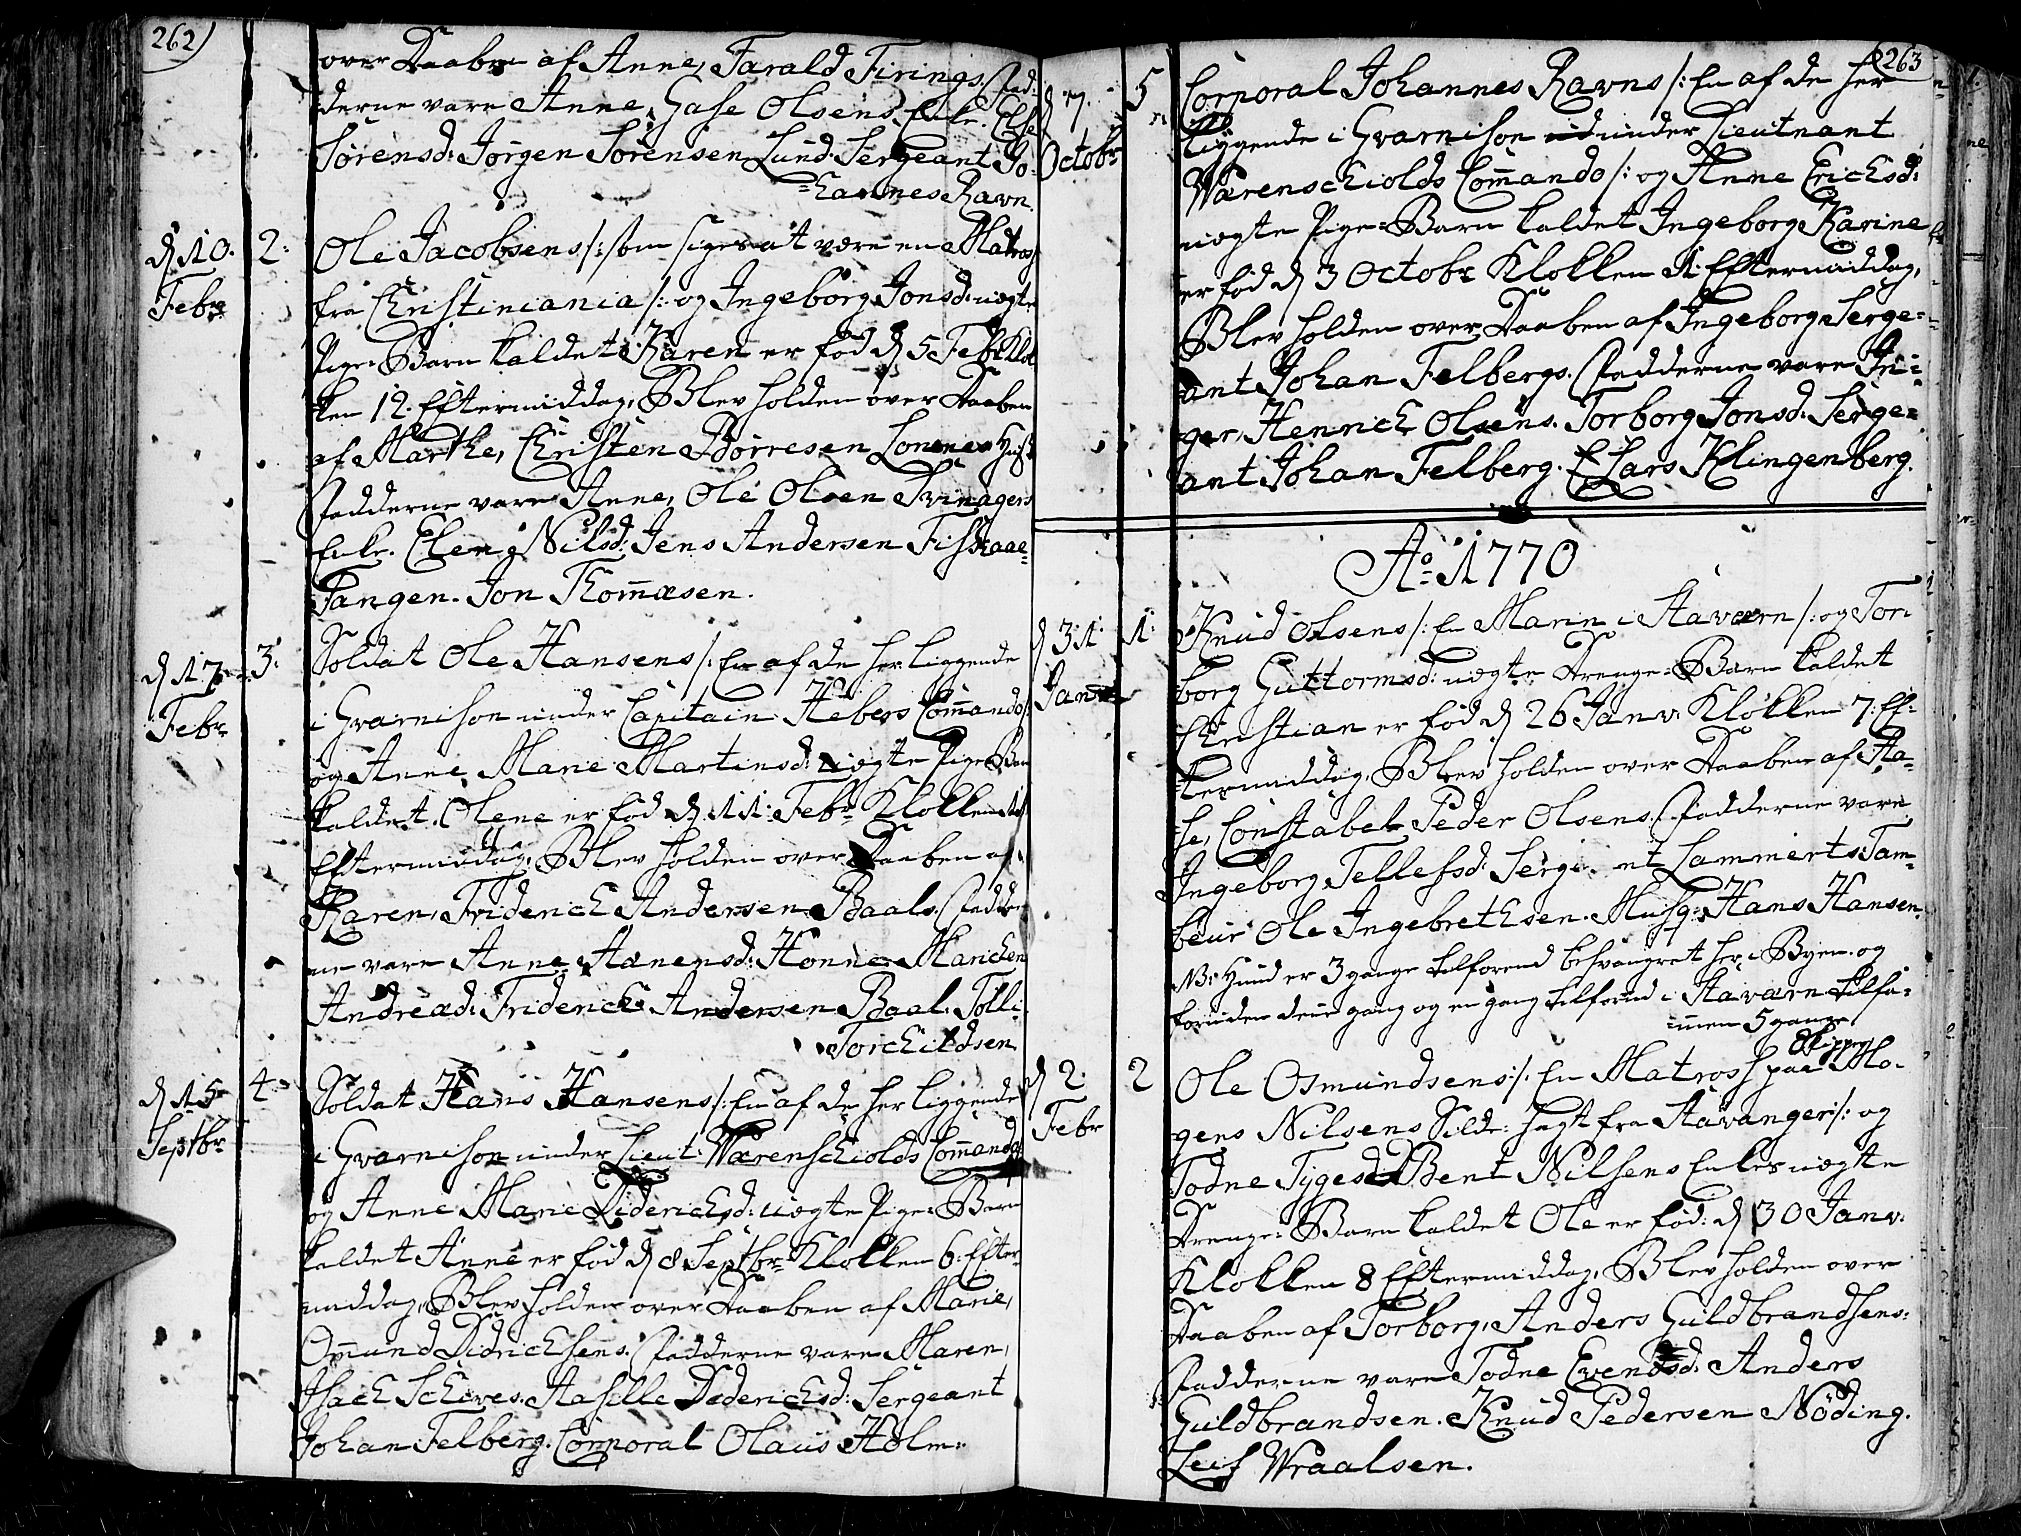 262)
over Daaben af Anne, Tarald Firings. Fad:
derne vare Anne, Gase Olsens Enke. Else
Sørensd: Jørgen Sørensen Lund. Sergeant Jo-
=hannes Ravn.
d 10.
Febr
2:
Ole Jacobsens /: som siges at være en Matros
fra Christiniania /: og Ingeborg Jonsd: uægte
Pige-Barn kaldet Karen er fød d 5 Febr Klok
ken 12. Eftermiddag, Blev holden over Daaben
af Marthe, Christen Børresen Lonnes Hust:
Fadderne vare Anne, Ole Olsen Tvinagers
Enke. Elen Nilsd: Jens Andersen Fiskaae=
Tangen. Jon Thomæsen.
d 17
Febr
3:
Soldat Ole Hansens /: En af de her liggende
i Gvarnison under Capitain Hebers Commando /:
og Anne Marie Martinsd: uægte Pige-Barn
kaldet Olene er fød d 11: Febr Klokken
Eftermiddag, Blev holden over Daaben af
Karen, Friderich Andersen Baals. Fadder-
ne vare Anne Aanensd: Honne. Marichen
Andreæd: Friderich Andersen Baal. Tolli
Torchildsen.
d 15
Septbr
4
Soldat Hans Hansens /: En af de her liggende
i Gvarnison under Lieut: Wærenschiolds Commando
og Anne Marie Diderichsd: uægte Pige-Barn
kaldet Anne er fød d 8 Septbr Klokken 6. Efter-
middag, Blev holden over Daaben af Marie,
Omund Didrichsens. Fadderne vare Maren,
Isach Schives. Aaselle Dederichsd: Sergeant
Johan Felberg. Corporal Olaus Holm.
263
d 7.
Octobr
5
Corporal Johannes Ravns /: En af de her
liggende i Gvarnison under Lieutnant
Wærenschiolds Commando /: og Anne Erichsd:
uægte Pige-Barn kaldet Ingeborg Karine
er fød d 3 Octobr Klokken 1. Eftermiddag,
Blev holden over Daaben af Ingeborg Serge=
ant Johan Felbergs. Fadderne vare In=
ger, Henrich Olsens. Torborg Jonsd: Serge=
ant Johan Felberg. Lars Klingenberg.
Ao 1770
d 31
Janv
1:
Knud Olsens /: En Marin i Staværn /: og Tor-
borg Guttormsd: uægte Drenge-Barn kaldet
Christian er fød d 26 Janv: Klokken 7. Ef-
termiddag, Blev holden over Daaben af Aa-
se, Constabel Peder Olsens. Fadderne vare
Ingeborg Tellefsd: Sergeant Lammerts. Tam-
beur Ole Ingebrethsen. Musq: Hans Hansen.
NB: Hund er 3 gange tilforend besvangret her i Byen. og
foruden denne gang og en gang tilforend i Staværn tilsa-
men 5 gange.
d 2
Febr
2
Skipper
Ole Osmundsens /: En Matros paa Mo-
gens Nilsens Silde-Jagt fra Stavanger /: og
Todne Tygesd: Bent Nilsens Enkes uægte
Drenge-Barn kaldet Ole er fød: d 30 Janv:
Klokken 8 Eftermiddag, Blev holden over
Daaben af Torborg, Anders Guldbrandsens.
Fadderne vare Todne Evendsd: Anders
Guldbrandsen. Knud Pedersen Nøding.
Leif Wraalsen.